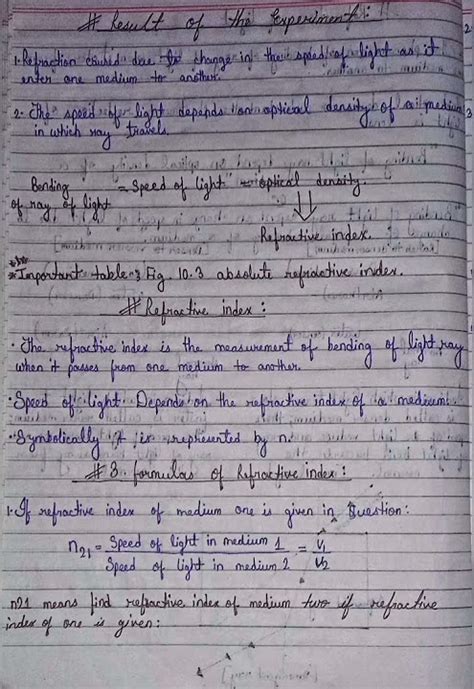 # Result of the Experiment:
1. Refraction caused due to change in the speed of light as it
enter one medium to another.
2. The speed of light depends on optical density of a medium
in which ray travels.
Bending = Speed of light = optical density
of ray of light
Refractive index.
* Important table: 3 Fig 10.3 absolute refractive index.
# Refractive index:
• The refractive index is the measurement of bending of light ray
when it passes from one medium to another.
• Speed of light Depends on the refractive index of a medium.
• Symbolically it is represented by n.
# 3 formulas of Refractive index:
1. If refractive index of medium one is given in Question:
n21 = Speed of light in medium 1 = V1
Speed of light in medium 2 V2
n21 means find refractive index of medium two if refractive
index of one is given: